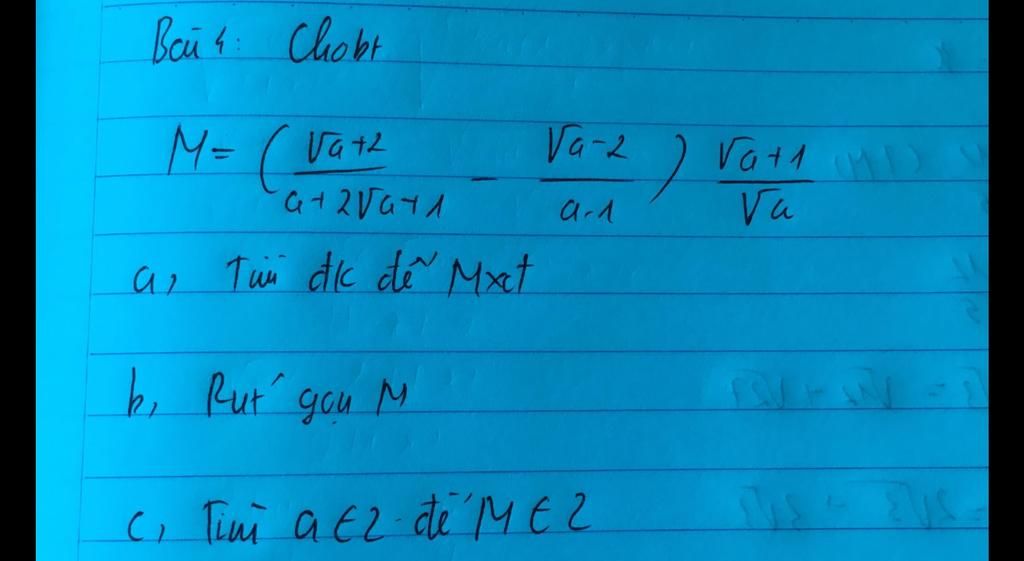 Bài 4: Cho bt
M = ( (√a+2)/(a+2√a+1) - (√a-2)/(a-1) ) (√a+1)/√a
a, Tìm đk để M xđ
b, Rút gọn M
c, Tìm a ∈ Z để M ∈ Z